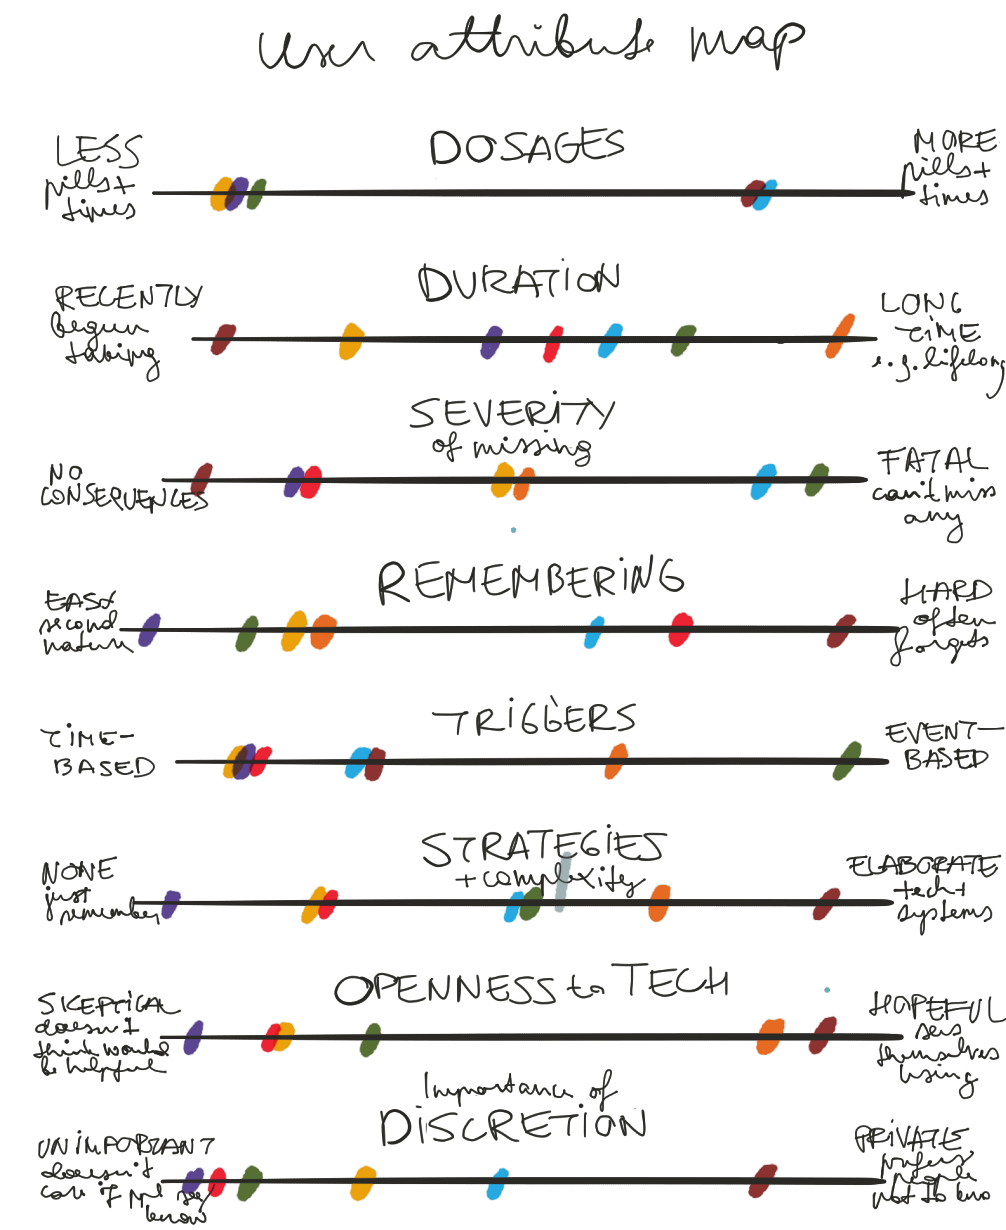 User attribute map
DOSAGES
LESS
pills +
times
MORE
pills +
times
DURATION
RECENTLY
begun
taking
LONG
TIME
e.g. lifelong
SEVERITY
of missing
NO
CONSEQUENCES
FATAL
can't miss
any
REMEMBERING
EASY
second
nature
HARD
often
forgets
TRIGGERS
TIME-
BASED
EVENT-
BASED
STRATEGIES
+ complexity
NONE
just
remember
ELABORATE
tech +
systems
OPENNESS to TECH
SKEPTICAL
doesn't
think would
be helpful
HOPEFUL
sees
themselves
using
Importance of
DISCRETION
UNIMPORTANT
doesn't
care if ppl
know
PRIVATE
prefers
people
not to kno